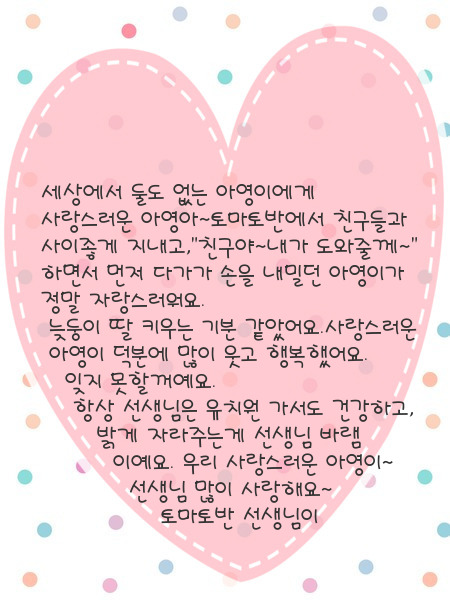 세상에서 둘도 없는 아영이에게
사랑스러운 아영아~토마토반에서 친구들과
사이좋게 지내고,"친구야~내가 도와줄께~"
하면서 먼저 다가가 손을 내밀던 아영이가
정말 자랑스러워요.
늦둥이 딸 키우는 기분 같았어요.사랑스러운
아영이 덕분에 많이 웃고 행복했어요.
잊지 못할꺼예요.
항상 선생님은 유치원 가서도 건강하고,
밝게 자라주는게 선생님 바램
이예요. 우리 사랑스러운 아영이~
선생님 많이 사랑해요~
토마토반 선생님이